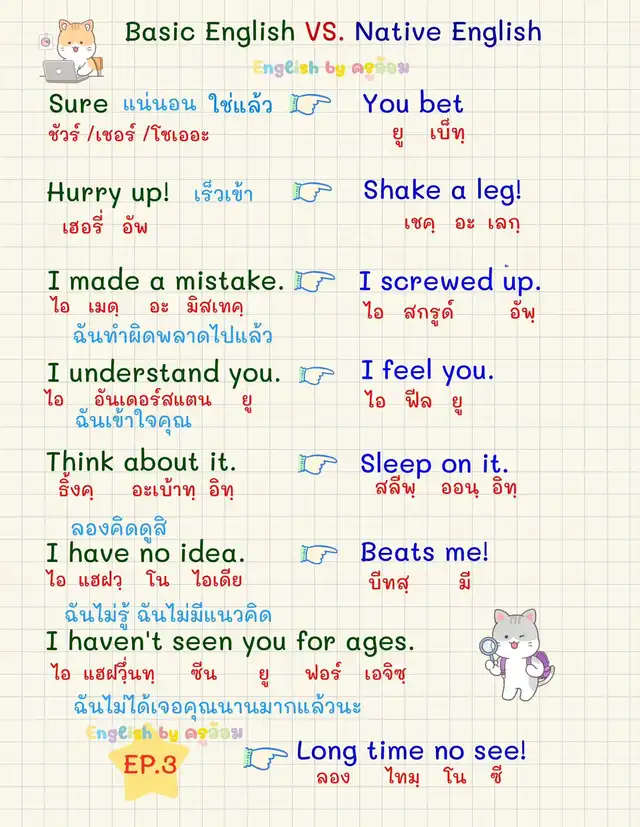 Basic English VS. Native English
English by ครูอ้อม
Sure แน่นอน ใช่แล้ว You bet
ชัวร์ /เชอร์ /โชเออะ ยู เบ็ทฺ
Hurry up! เร็วเข้า Shake a leg!
เฮอรี่ อัพ เชคฺ อะ เลกฺ
I made a mistake. I screwed up.
ไอ เมดฺ อะ มิสเทคฺ ไอ สกรูด์ อัพฺ
ฉันทำผิดพลาดไปแล้ว
I understand you. I feel you.
ไอ อันเดอร์สแตน ยู ไอ ฟีล ยู
ฉันเข้าใจคุณ
Think about it. Sleep on it.
ธิ้งคฺ อะเบ้าทฺ อิทฺ สลีพฺ ออนฺ อิทฺ
ลองคิดดูสิ
I have no idea. Beats me!
ไอ แฮฝวฺ โน ไอเดีย บีทสฺ มี
ฉันไม่รู้ ฉันไม่มีแนวคิด
I haven't seen you for ages.
ไอ แฮฝวึ่นทฺ ซีน ยู ฟอร์ เอจิซฺ
ฉันไม่ได้เจอคุณนานมากแล้วนะ
English by ครูอ้อม
EP.3 Long time no see!
ลอง ไทมฺ โน ซี